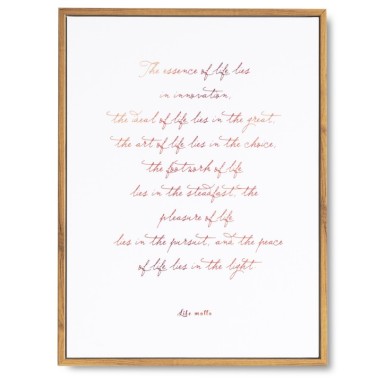 The essence of life lies
in innovation,
the ideal of life lies in the great,
the art of life lies in the choice,
the footwork of life
lies in the steadfast, the
pleasure of life
lies in the pursuit, and the peace
of life lies in the light
life motto